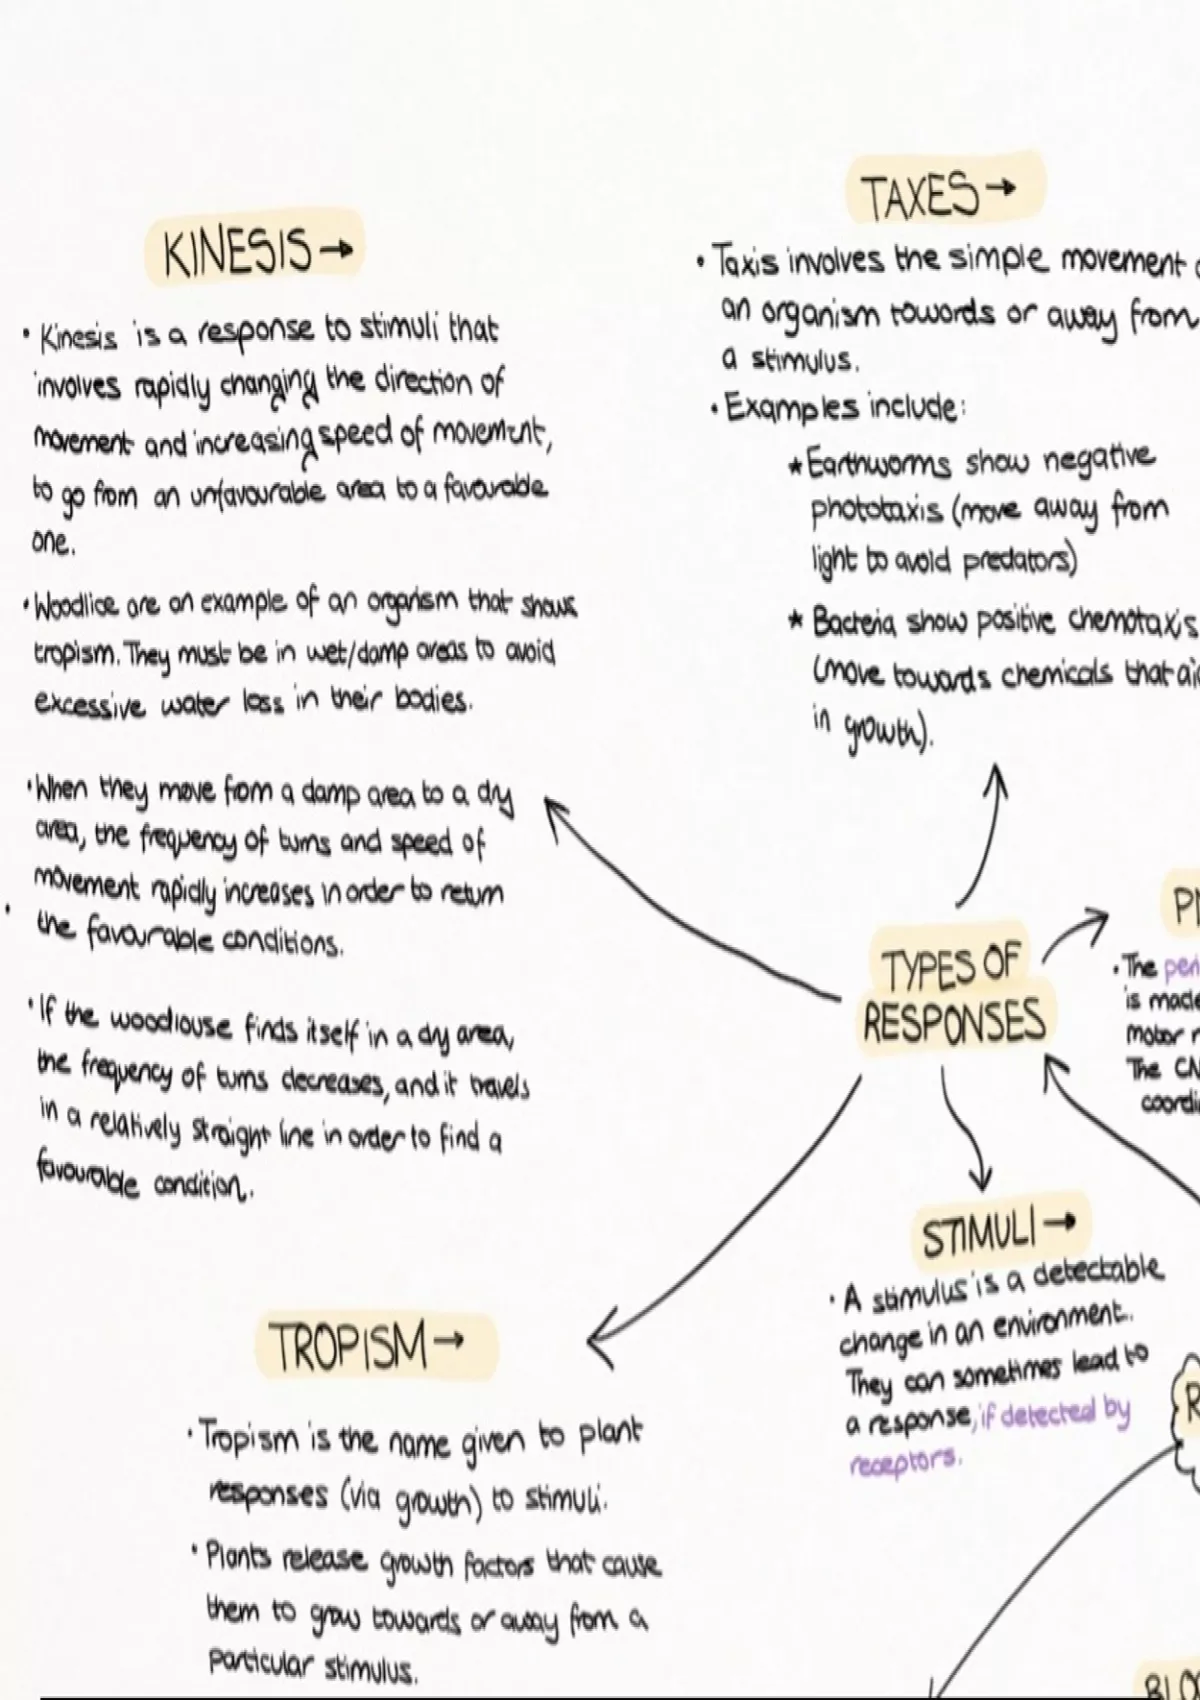 KINESIS→
• Kinesis is a response to stimuli that
involves rapidly changing the direction of
movement and increasing speed of movement,
to go from an unfavourable area to a favourable
one.
• Woodlice are an example of an organism that shows
tropism. They must be in wet/damp areas to avoid
excessive water loss in their bodies.
• When they move from a damp area to a dry
area, the frequency of turns and speed of
movement rapidly increases in order to return
• the favourable conditions.
• If the woodlouse finds itself in a dry area,
the frequency of turns decreases, and it travels
in a relatively straight line in order to find a
favourable condition.
TAXES→
• Taxis involves the simple movement
an organism towards or away from
a stimulus.
• Examples include:
★ Earthworms show negative
phototaxis (move away from
light to avoid predators)
★ Bacteria show positive chemotaxis
(move towards chemicals that aid
in growth).
TYPES OF
RESPONSES
• The peri
is made
motor
The CN
coordi
STIMULI→
• A stimulus is a detectable
change in an environment.
They can sometimes lead to
a response, if detected by
receptors.
TROPISM→
• Tropism is the name given to plant
responses (via growth) to stimuli.
• Plants release growth factors that cause
them to grow towards or away from a
particular stimulus.
R
BLO